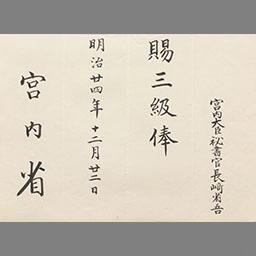 宮内大臣祕書官長﨑省吾
賜三級俸
明治廿四年十二月廿二日
宮内省